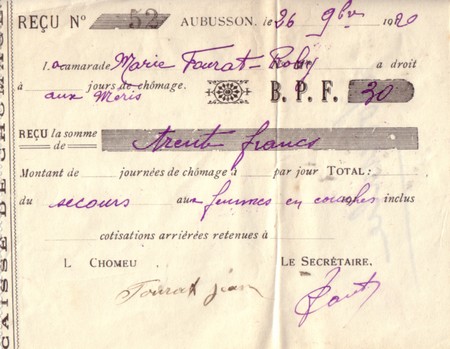 REÇU Nº 52 AUBUSSON, le 26 9bre 1920
La camarade Marie Tourat-Roby a droit
à jours de chômage.
aux Meris B. P. F. 30
REÇU la somme
de trente francs
Montant de journées de chômage à par jour TOTAL:
du secours aux femmes en couches inclus
cotisations arriérées retenues à
L CHOMEU LE SECRÉTAIRE,
Tourat jean
CAISSE DE CHOMAGE